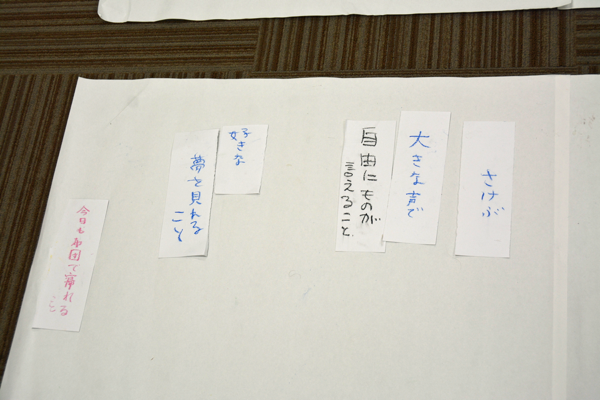 さけぶ
大きな声で
自由にものが
言えること
好きな
夢を見れる
こと
今日も布団で寝れる
こと